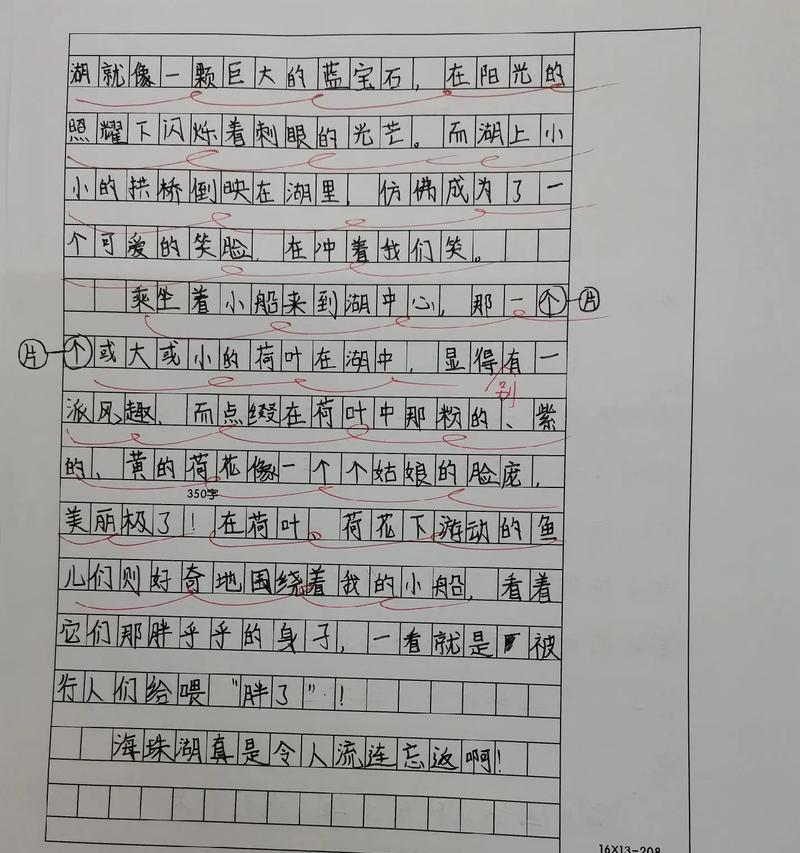 湖就像一颗巨大的蓝宝石，在阳光的
照耀下闪烁着刺眼的光芒。而湖上小
小的拱桥倒映在湖里，仿佛成为了一
个可爱的笑脸，在冲着我们笑。
乘坐着小船来到湖中心，那一个 片
片 个或大或小的荷叶在湖中，显得有一
别
派风趣，而点缀在荷叶中那粉的、紫
的、黄的荷花像一个个姑娘的脸庞，
350字
美丽极了！在荷叶、荷花下游动的鱼
儿们则好奇地围绕着我的小船，看着
它们那胖乎乎的身子，一看就是被
行人们给喂“胖了”！
海珠湖真是令人流连忘返啊！
16X13-208